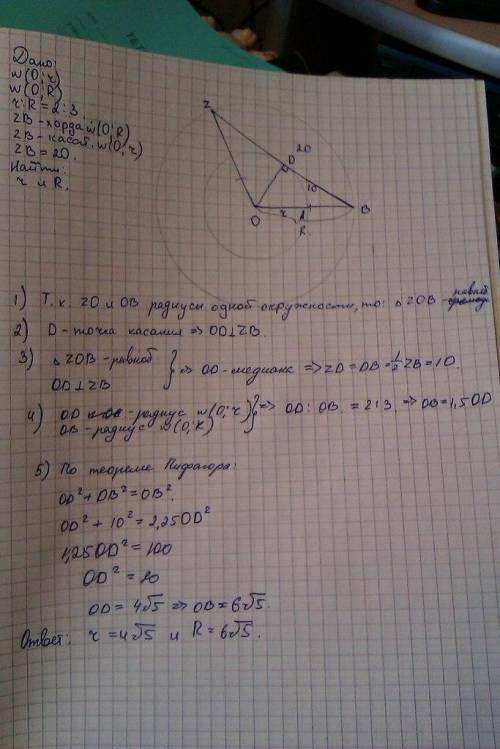 Дано:
w(O; r)
w(O; R)
r:R = 2:3
ZB - хорда w(O; R)
ZB - касат. w(O; r)
ZB = 20.
Найти:
r и R.
Z
20
D
10
O
r
A
B
R.
1) Т.к. ZO и OB радиусы одной окружности, то: △ZOB - равноб
2) D - точка касания => OD⊥ZB.
3) △ZOB - равноб
OD⊥ZB } => OD - медиана => ZD = DB = 1/2 ZB = 10.
4) OD - радиус w(O; r)
OB - радиус w(O; R) } => OD : OB = 2:3. => OB = 1,5OD
5) По теореме Пифагора:
OD² + DB² = OB².
OD² + 10² = 2,25OD²
1,25OD² = 100
OD² = 80
OD = 4√5 => OB = 6√5.
Ответ: r = 4√5 и R = 6√5.